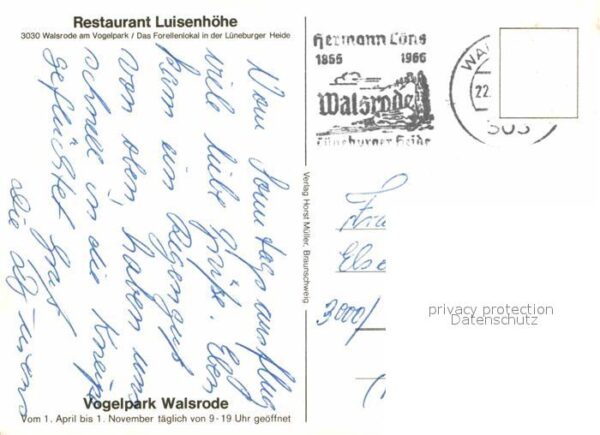 Restaurant Luisenhöhe
3030 Walsrode am Vogelpark / Das Forellenlokal in der Lüneburger Heide
Vom Sonntagsausflug
viele liebe Grüße. Eben
kam ein Regenguß
von oben, haben uns
schnell in die Kneipe
geflüchtet
Die
Vogelpark Walsrode
Vom 1. April bis 1. November täglich von 9-19 Uhr geöffnet
Verlag Horst Müller, Braunschweig
Hermann Löns
1866 1966
Walsrode
Lüneburger Heide
WA
22.
303
Else
3000/
privacy protection
Datenschutz